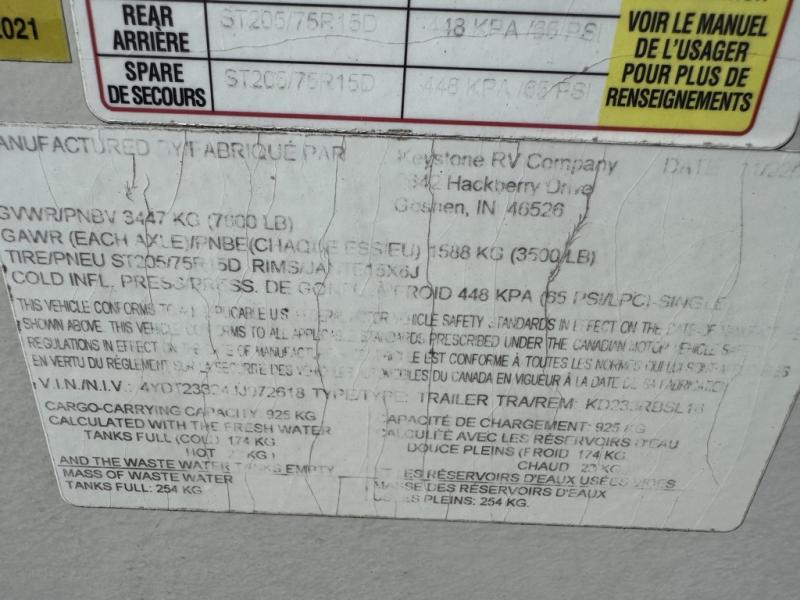 2021
REAR ST205/75R15D 448 KPA /65/PSI
ARRIÈRE
SPARE ST205/75R15D 448 KPA /65/PSI
DE SECOURS
VOIR LE MANUEL
DE L'USAGER
POUR PLUS DE
RENSEIGNEMENTS
MANUFACTURED BY/FABRIQUÉ PAR Keystone RV Company DATE
Hackberry Drive
Goshen, IN 46526
GVWR/PNBV 3447 KG (7600 LB)
GAWR (EACH AXLE)/PNBE(CHAQUE ESSIEU) 1588 KG (3500 LB)
TIRE/PNEU ST205/75R15D RIMS/JANTE15X6J
COLD INFL. PRESS/PRESS. DE GONFL A FROID 448 KPA (65 PSI/LPC)-SINGLE
THIS VEHICLE CONFORMS TO ALL APPLICABLE U.S. FEDERAL MOTOR VEHICLE SAFETY STANDARDS IN EFFECT ON THE DATE OF MANUFACTURE
SHOWN ABOVE. THIS VEHICLE CONFORMS TO ALL APPLICABLE STANDARDS PRESCRIBED UNDER THE CANADIAN MOTOR VEHICLE SAFETY
REGULATIONS IN EFFECT ON THE DATE OF MANUFACTURE. VEHICLE EST CONFORME À TOUTES LES NORMES QUI LUI SONT
EN VERTU DU RÈGLEMENT SUR LA SÉCURITÉ DES VÉHICULES AUTOMOBILES DU CANADA EN VIGUEUR À LA DATE DE SA FABRICATION
V.I.N./N.I.V.: TYPE/TYPE: TRAILER TRA/REM:
CARGO-CARRYING CAPACITY: 925 KG
CALCULATED WITH THE FRESH WATER
TANKS FULL (COLD) 174 KG.
HOT KG
AND THE WASTE WATER TANKS EMPTY
MASS OF WASTE WATER
TANKS FULL: 254 KG
CAPACITÉ DE CHARGEMENT: 925 KG
CALCULÉE AVEC LES RÉSERVOIRS D'EAU
DOUCE PLEINS (FROID 174 KG
CHAUD 23 KG
ET LES RÉSERVOIRS D'EAUX USÉES VIDES
MASSE DES RÉSERVOIRS D'EAUX
USÉES PLEINS: 254 KG.